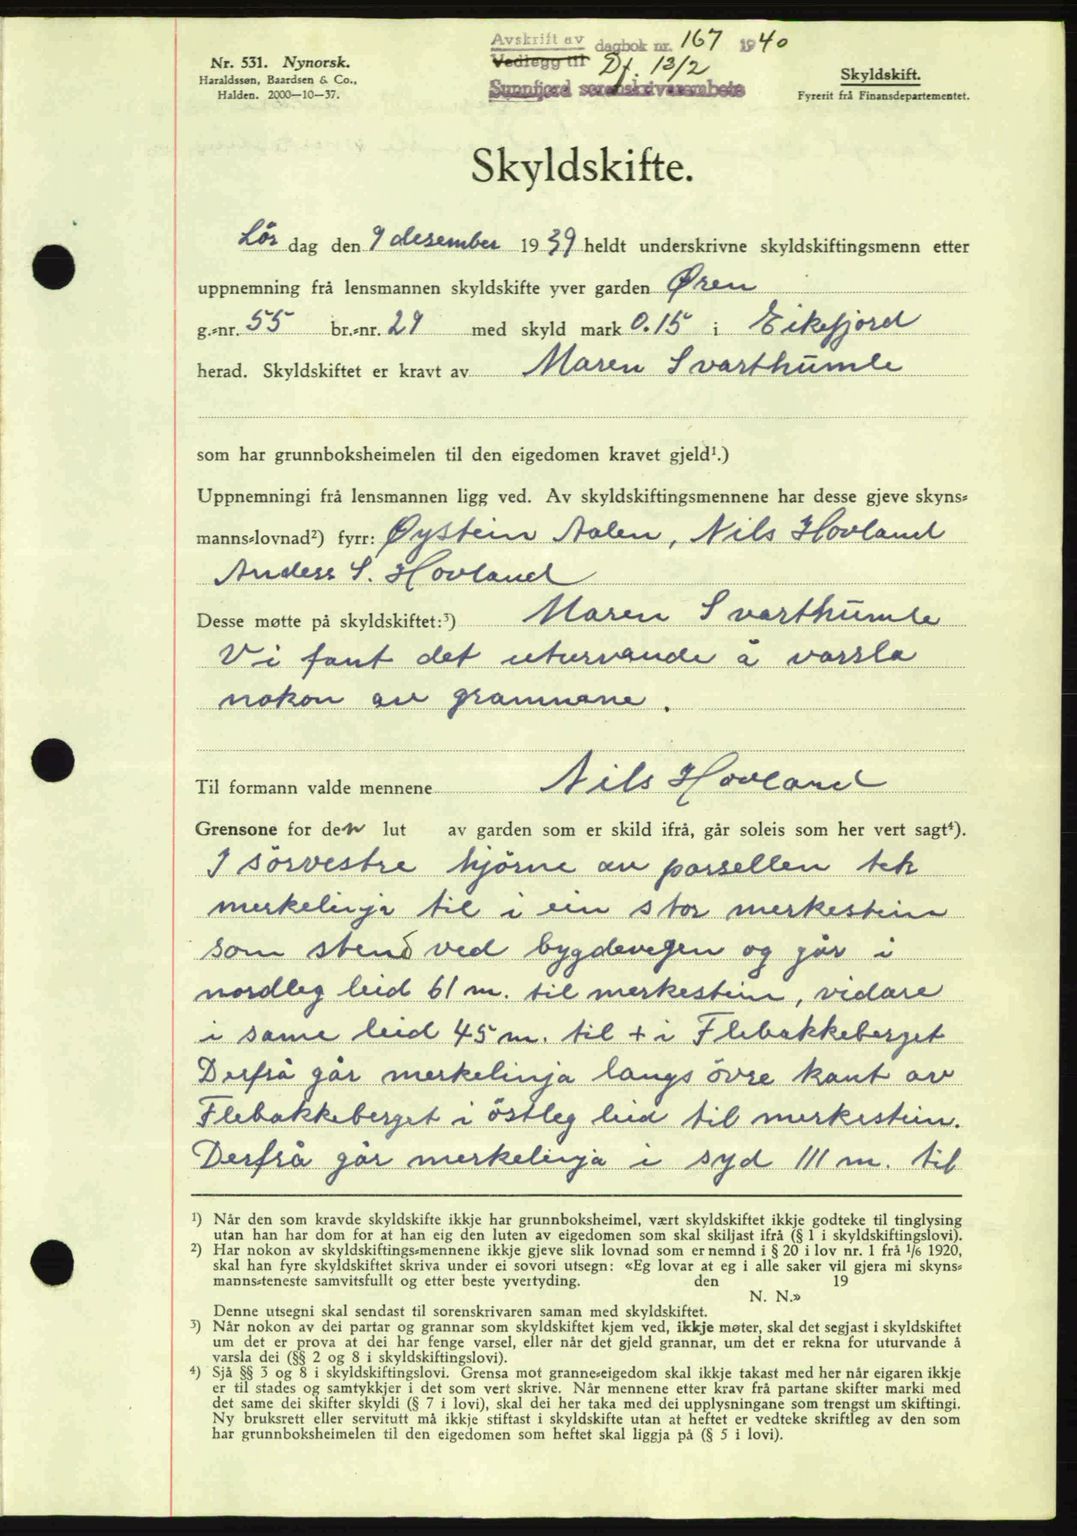 Avskrift av dagbok nr. 167 1940
Vedlegg til Df. 13/2
Sunnfjord sorenskrivarembete
Nr. 531. Nynorsk.
Haraldssøn, Baardsen & Co.,
Halden. 2000—10—37.
Skyldskift.
Fyrerit frå Finansdepartementet.
Skyldskifte.
Lör dag den 9 desember 1939 heldt underskrivne skyldskiftingsmenn etter
uppnemning frå lensmannen skyldskifte yver garden Øren
g.-nr. 55 br.-nr. 29 med skyld mark 0.15 i Eikefjord
herad. Skyldskiftet er kravt av Maren Svarthumle
som har grunnboksheimelen til den eigedomen kravet gjeld¹.)
Uppnemningi frå lensmannen ligg ved. Av skyldskiftingsmennene har desse gjeve skyns-
manns-lovnad²) fyrr: Øystein Aalen, Nils Hovland
Anders S. Hovland
Desse møtte på skyldskiftet:³) Maren Svarthumle
Vi fant det uturvande å varsla
nokon av grannane.
Til formann valde mennene Nils Hovland
Grensone for den lut av garden som er skild ifrå, går soleis som her vert sagt⁴).
I sörvestre hjörne av parsellen tek
merkelinja til i ein stor merkestein
som stend ved bygdevegen og går i
nordleg leid 61 m. til merkestein, vidare
i same leid 45 m. til + i Flebakkeberget
Derfrå går merkelinja langs övre kant av
Flebakkeberget i östleg leid til merkestein.
Derfrå går merkelinja i syd 111 m. til
¹) Når den som kravde skyldskifte ikkje har grunnboksheimel, vært skyldskiftet ikkje godteke til tinglysing
utan han har dom for at han eig den luten av eigedomen som skal skiljast ifrå (§ 1 i skyldskiftingslovi).
²) Har nokon av skyldskiftings-mennene ikkje gjeve slik lovnad som er nemnd i § 20 i lov nr. 1 frå 1/6 1920,
skal han fyre skyldskiftet skriva under ei sovori utsegn: «Eg lovar at eg i alle saker vil gjera mi skyns-
manns-teneste samvitsfullt og etter beste yvertyding. den 19
N. N.»
Denne utsegni skal sendast til sorenskrivaren saman med skyldskiftet.
³) Når nokon av dei partar og grannar som skyldskiftet kjem ved, ikkje møter, skal det segjast i skyldskiftet
um det er prova at dei har fenge varsel, eller når det gjeld grannar, um det er rekna for uturvande å
varsla dei (§§ 2 og 8 i skyldskiftingslovi).
⁴) Sjå §§ 3 og 8 i skyldskiftingslovi. Grensa mot granne-eigedom skal ikkje takast med her når eigaren ikkje
er til stades og samtykkjer i det som vert skrive. Når mennene etter krav frå partane skifter marki med
det same dei skifter skyldi (§ 7 i lovi), skal dei her taka med dei upplysningane som trengst um skiftingi.
Ny bruksrett eller servitutt må ikkje stiftast i skyldskifte utan at heftet er vedteke skriftleg av den som
har grunnboksheimelen til den eigedomen som heftet skal liggja på (§ 5 i lovi).